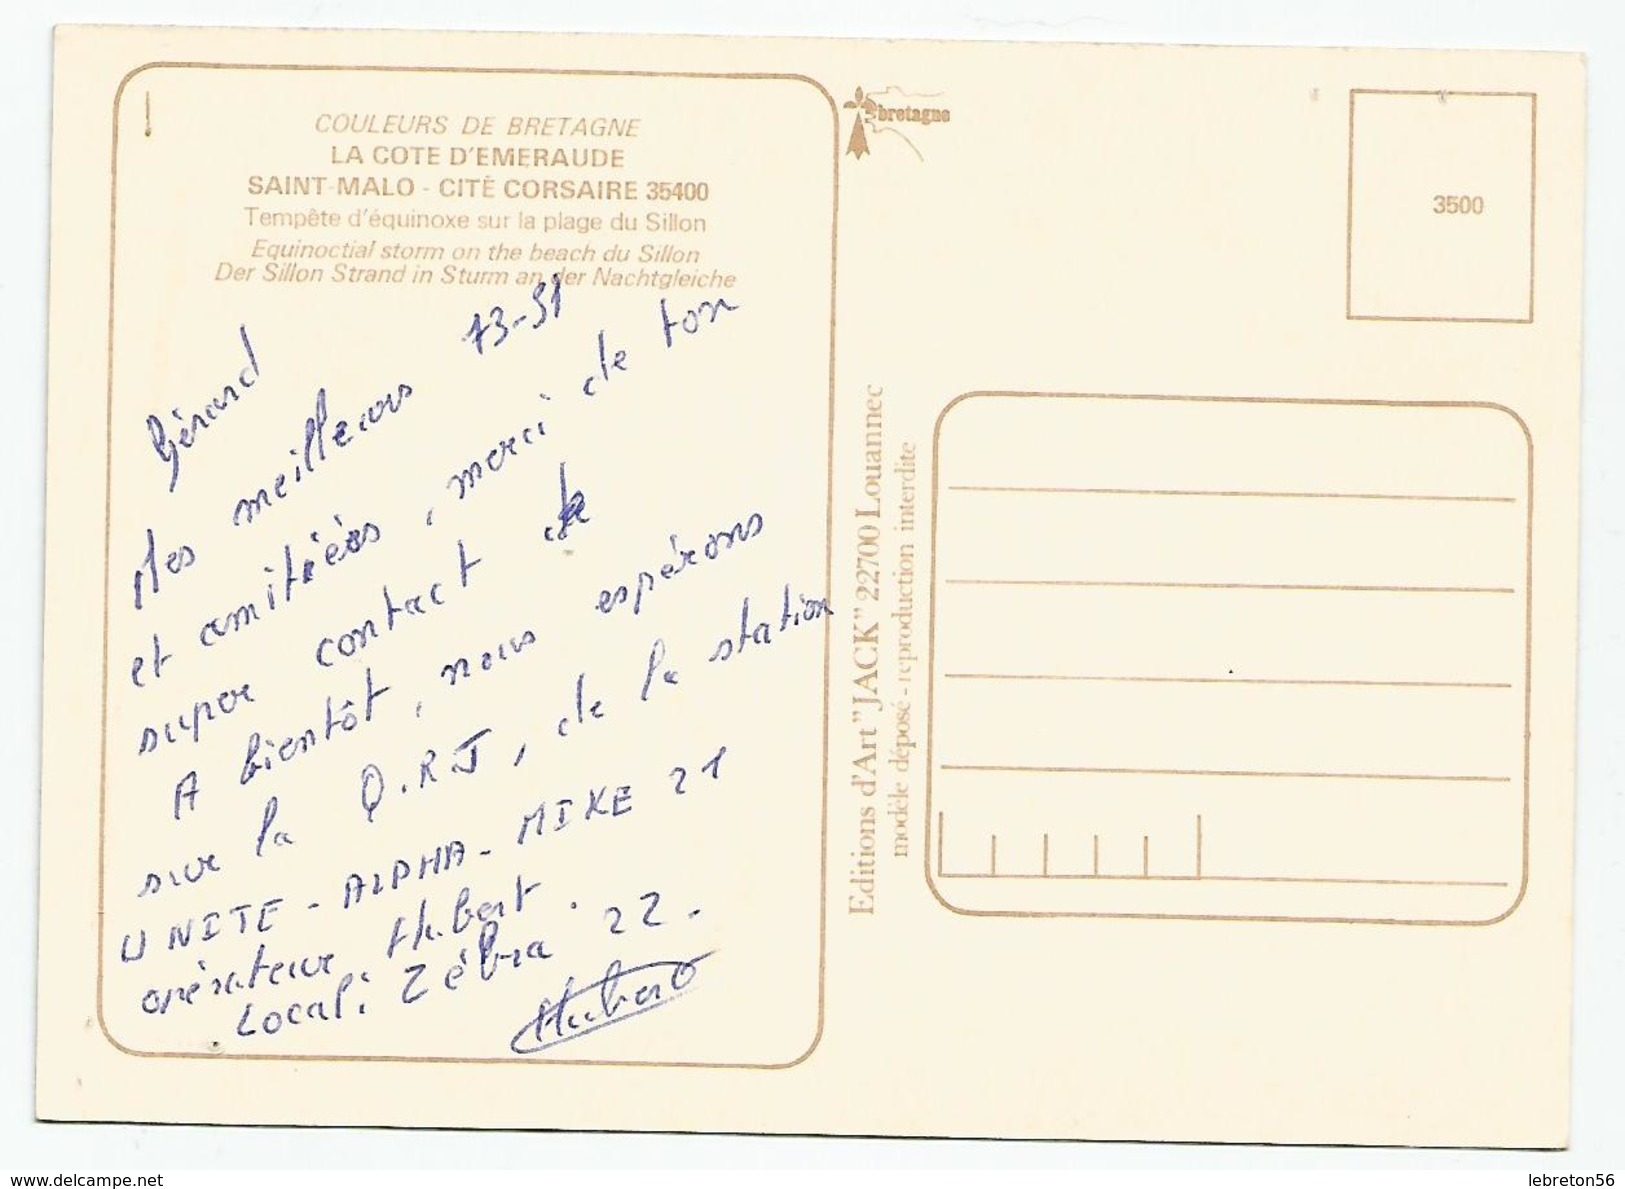 COULEURS DE BRETAGNE
LA COTE D'EMERAUDE
SAINT-MALO - CITÉ CORSAIRE 35400
Tempête d'équinoxe sur la plage du Sillon
Equinoctial storm on the beach du Sillon
Der Sillon Strand in Sturm an der Nachtgleiche
Gérard
Mes meilleurs 73-51
et amitiées, merci de ton
super contact de
A bientôt, nous espérons
sur la Q.R.J, de la station
UNITE-ALPHA-MIKE 21
opérateur Hubert.
Local: Zébra 22.
Hubert
bretagne
3500
Editions d'Art "JACK" 22700 Louannec
modèle déposé - reproduction interdite
delcampe.net
lebreton56